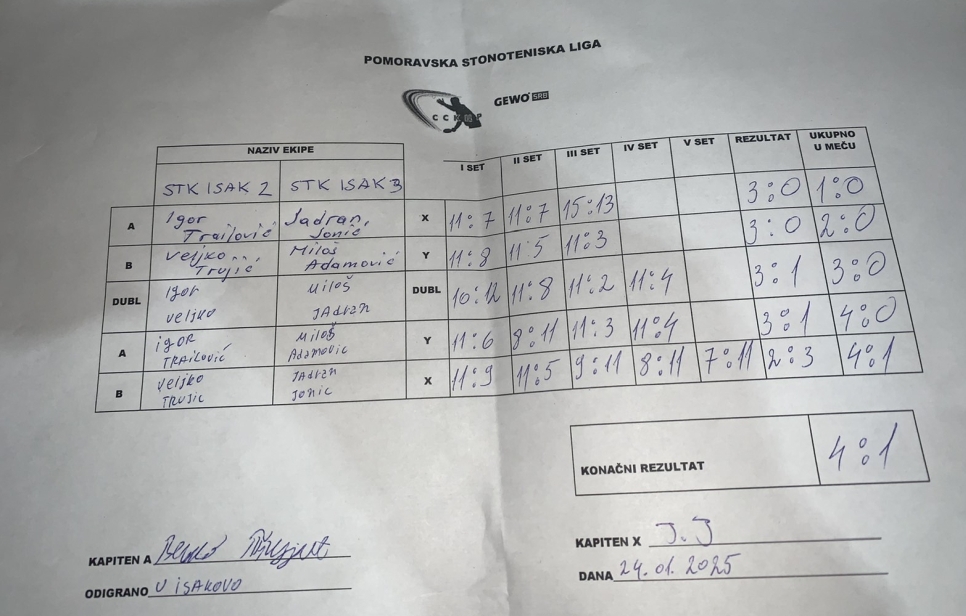 POMORAVSKA STONOTENISKA LIGA
GEWO SRB
NAZIV EKIPE
I SET II SET III SET IV SET V SET REZULTAT UKUPNO U MEČU
STK ISAK 2 STK ISAK 3
A Igor Trailović Jadran Jonić X 11:7 11:7 15:13 3:0 1:0
B Veljko Trujić Miloš Adamović Y 11:8 11:5 11:3 3:0 2:0
DUBL Igor Veljko Miloš JAdran DUBL 10:12 11:8 11:2 11:4 3:1 3:0
A igor TRAILOVIĆ Miloš Adamovic Y 11:6 8:11 11:3 11:4 3:1 4:0
B Veljko TRUJIC JAdran Jonic X 11:9 11:5 9:11 8:11 7:11 2:3 4:1
KONAČNI REZULTAT 4:1
KAPITEN A
KAPITEN X J.J
ODIGRANO U ISAKOVO
DANA 24.01.2025